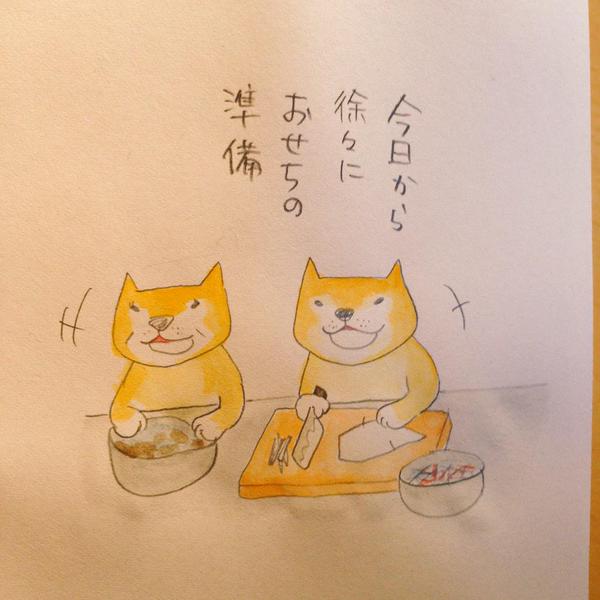 今日から
徐々に
おせちの
準備